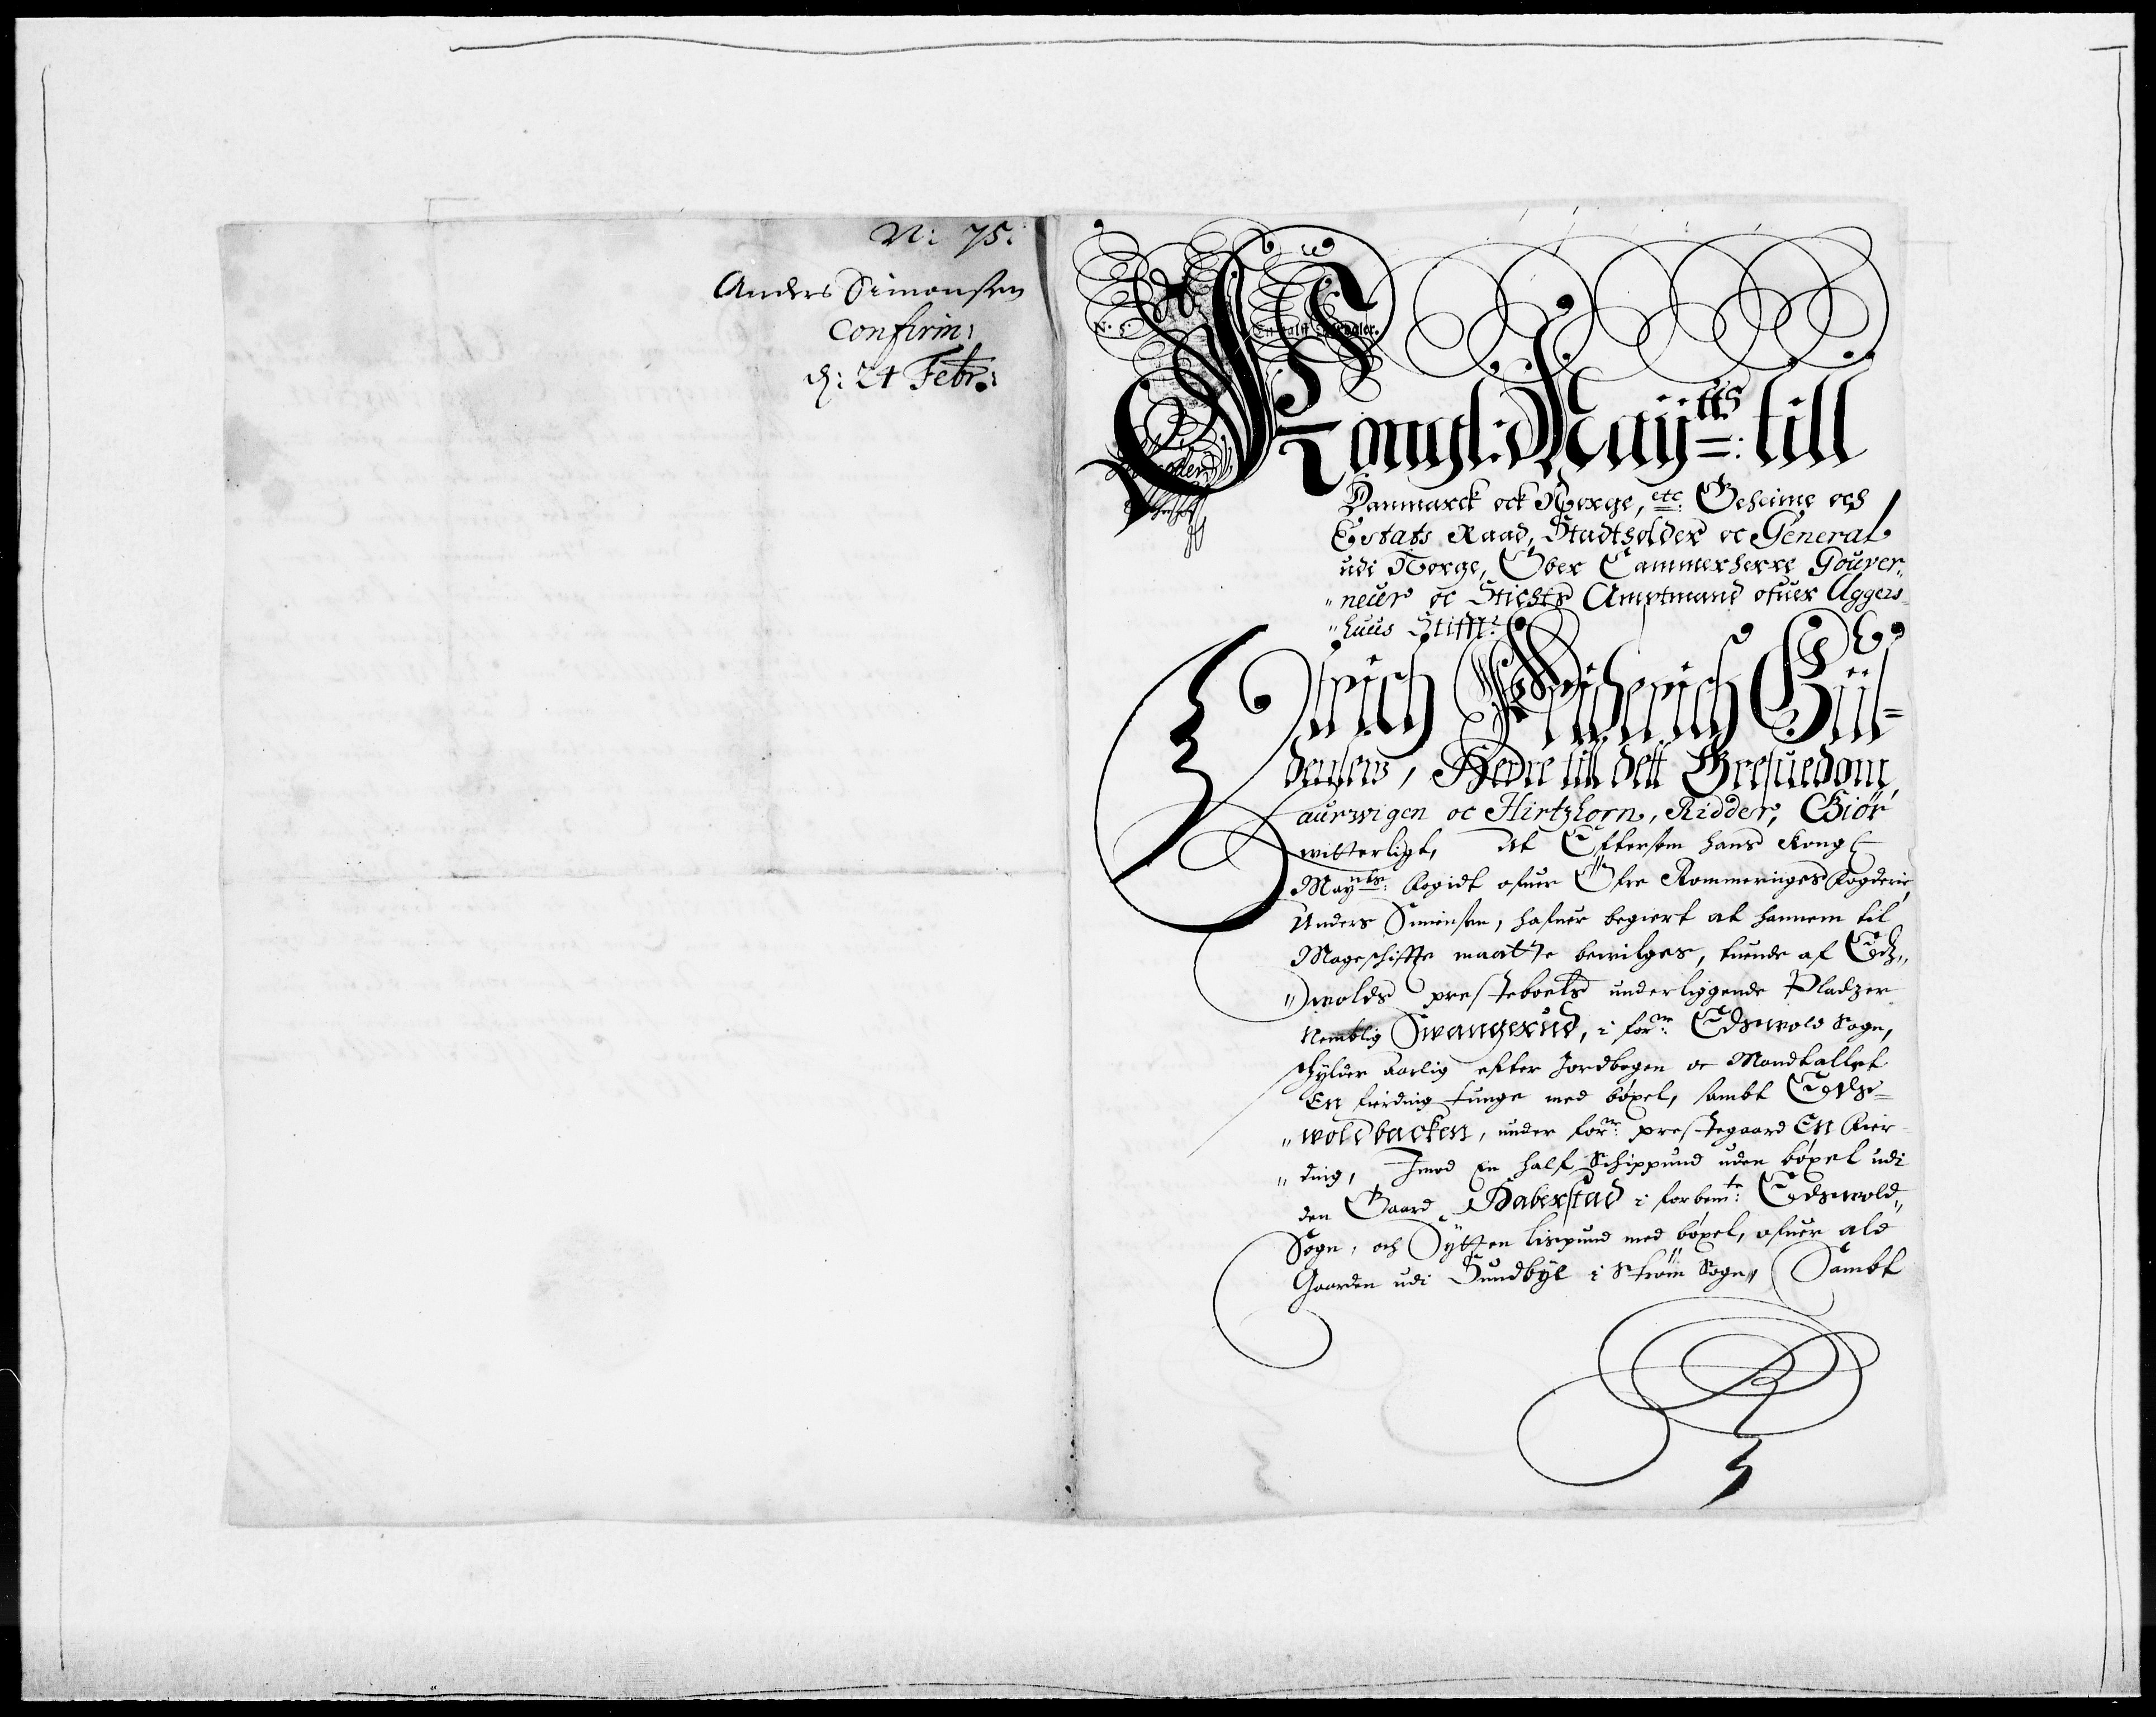 N: 75.
Anders Simonsen
Confirm:
d: 24 Febr.:
N. 5.
En halff
Kongl: Mayᵗᵗˢ: till
Danmarck ock Norge, etc: Geheime och
Estats Raad, Stadtholder oc General
udi Norge, Ober Cammerherre Gouver„
„neur oc Stichts Amptmand ofuer Aggers
„huus Stifft:
Ulrich Friderich Gül=
denlew, Herre till dett Grefuedom
Laurwigen oc Hirtzhorn, Ridder, Giör
witterligt, At Eftersom hans Kongl
Mayᵗᵗˢ: Fogidt ofuer Öfre Rommeriges Fogderie
Anders Simensen, hafuer begiert at hannem til
Mageschiffte maatte bewilges, tuende af Edtz„
„wolds presteboels underliggende Pladzer
Nemblig Swangerud, i forⁿᵉ: Edswold Sogn,
schylder aarlig efter Jordbogen oc Mandtallet
En fierding tunge med böxel, sambt Edtze=
„woldbacken, under forⁿᵉ: prestegaard En Fier
„ding, Imod En half Schippund uden böxel udi
den Gaard Haberstad i forbemᵗᵉ: Edswold„
Sogn, och Sytten lispund med böxel, ofuer ald
Gaarden udi Sundbye i Ström Sogn, Sambt